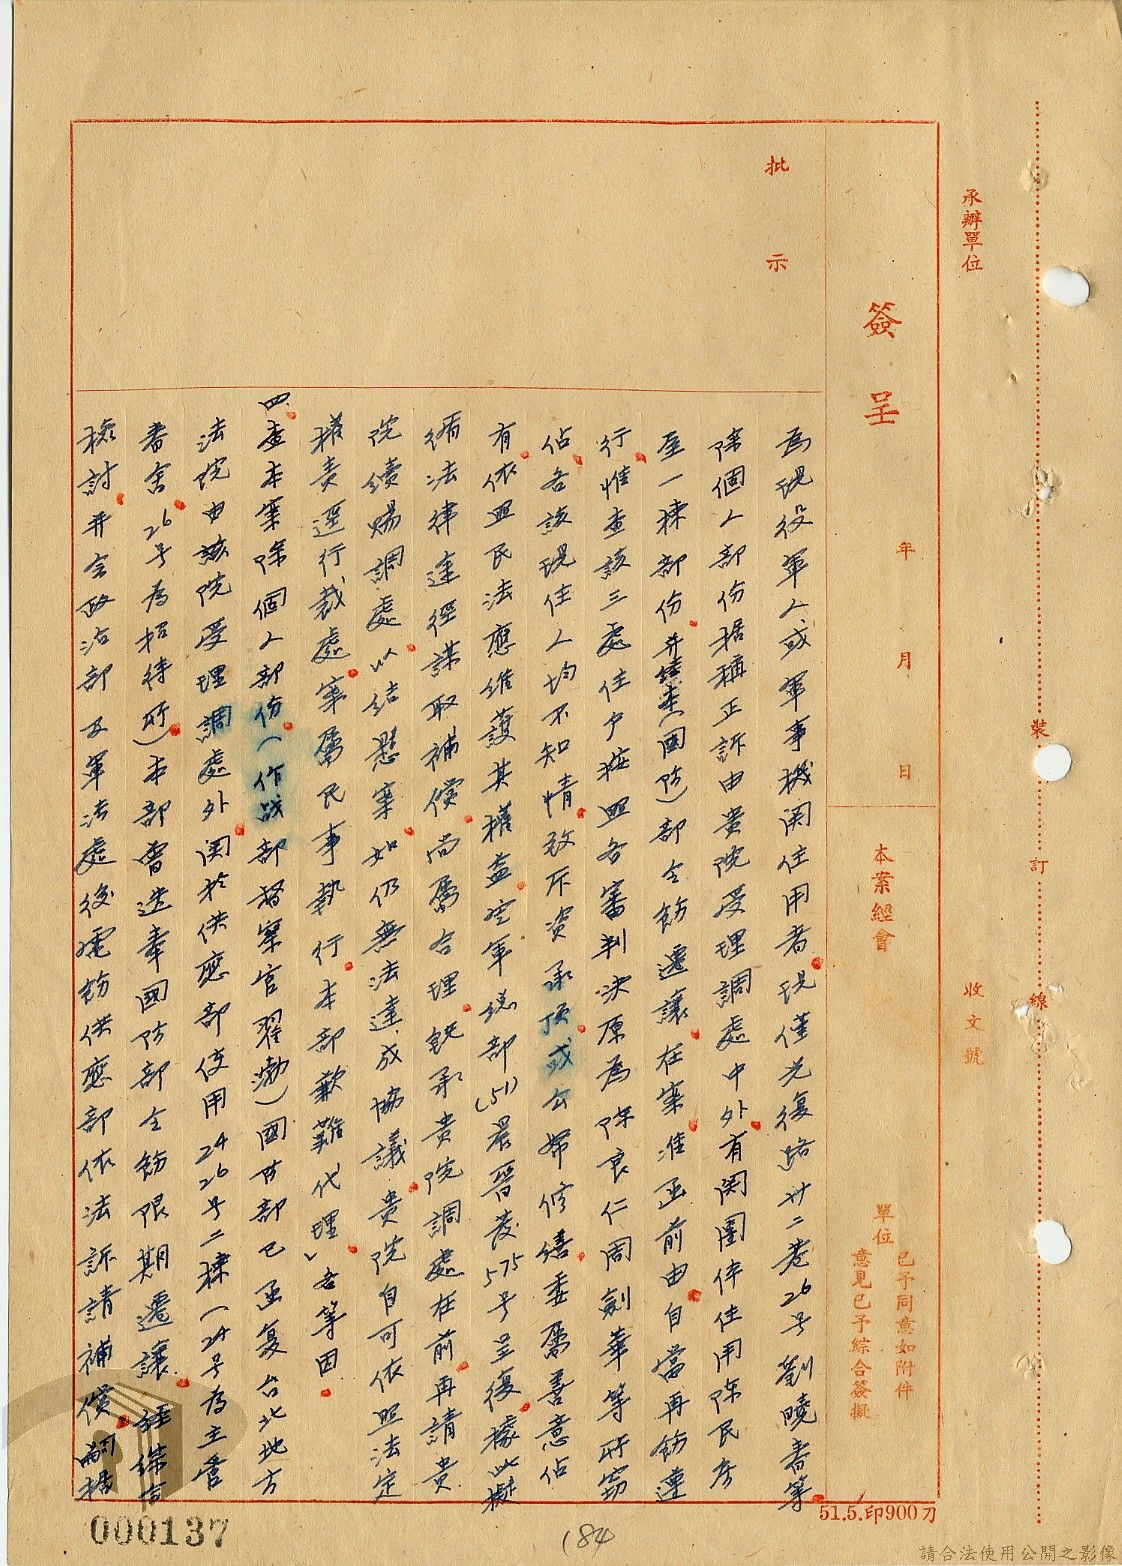 承辦單位
裝
訂
線
簽呈
年
月
日
本案經會
收文號
單位
已予同意如附件
意見已予綜合簽擬
批示
為現役軍人或軍事機関住用者現僅光復路廿二巷26号劉曉春等
除個人部份据稱正訴由貴院受理調處中外有関圍佯住用陈民房
至一棟部份(国防)部令飭遷讓在案准函前由自當再飭遵
行惟查該三處住户按照各審判決原為陈良仁周劍華等所竊
佔各該現住人均不知情致斥資承頂或公帑修繕委屬善意佔
有依照民法應維護其權益空軍總部(51)晨晉茇575号呈復據此擬
循法律途徑謀取補償尚屬合理銑承貴院調處在前再請貴
院續賜調處以結懸案如仍無法達成協議貴院自可依照法定
權責逕行裁處案屬民事執行本部歉難代理」各等因
四查本案除個人部份(作战部督察官翟渤)國防部已函复台北地方
法院由該院受理調處外関於供應部使用24 26号二棟(24号為主管
眷舍26号為招待所)本部曾迭奉國防部令飭限期遷讓經綜
檢討并会政治部及軍法處後電飭供應部依法訴請補償嗣据
51.5.印900刀
000137
184
請合法使用公開之影像